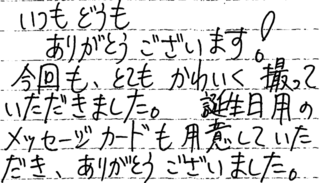 いつも どうも
ありがとう ございます!
今回も、とても かわいく 撮って
いただきました。 誕生日用の
メッセージカードも 用意して いた
だき、ありがとう ございました。